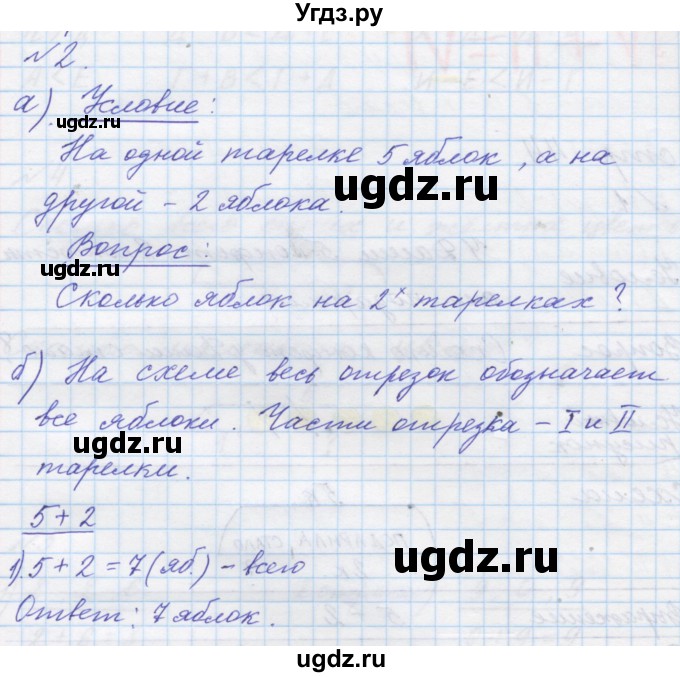 Угдз.ру
№2.
а) Условие:
угдз.ru
На одной тарелке 5 яблок, а на
ugdz.ru
другой – 2 яблока.
Вопрос:
ugdz.ru
ugdz.ru
Сколько яблок на 2х тарелках?
ugdz.ru
б) На схеме весь отрезок обозначает
все яблоки. Части отрезка – I и II
ugdz.ru
ugdz.ru
тарелки.
5 + 2
1) 5 + 2 = 7 (яб.) – всего
ugdz.ru
Ответ: 7 яблок.
ugdz.ru
ugdz.ru